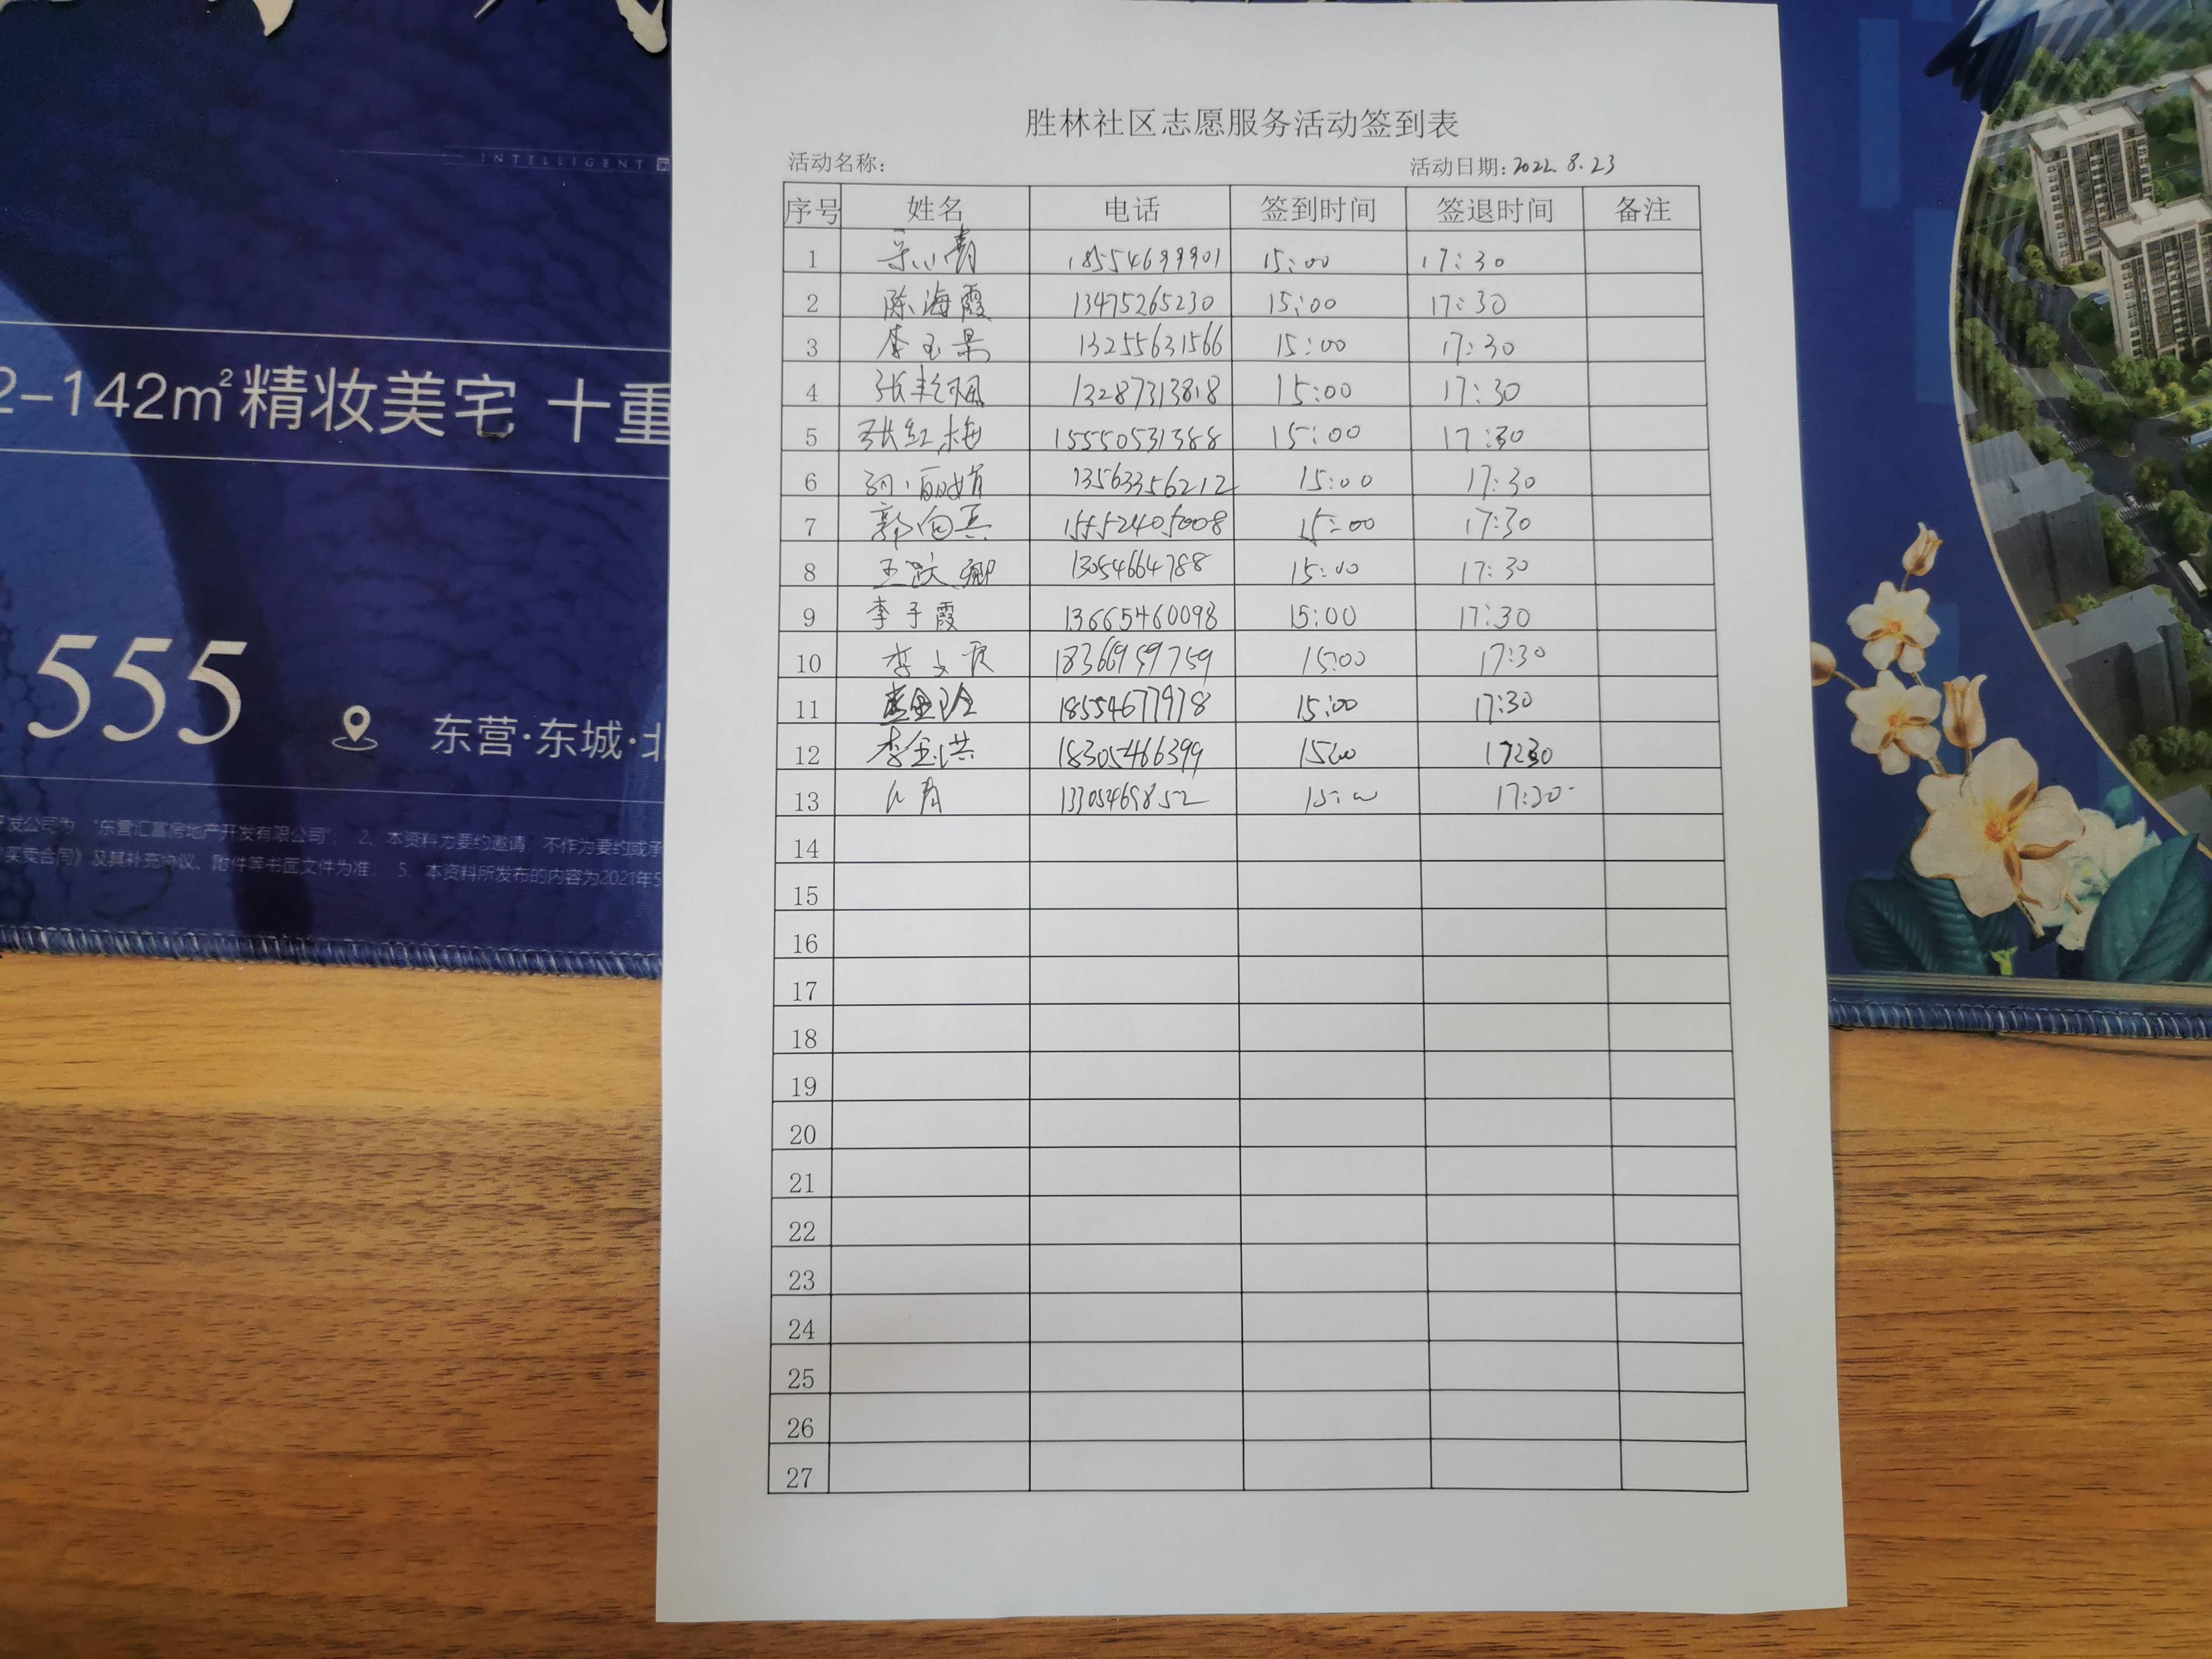 INTELLIGENT
2-142㎡精妆美宅 十重
555
东营·东城·北
开发公司为 “东营汇富房地产开发有限公司”； 2、本资料为要约邀请，不作为要约或承
买卖合同》及其补充协议、附件等书面文件为准； 5、本资料所发布的内容为2021年5
胜林社区志愿服务活动签到表
活动名称： 活动日期：2022.8.23
序号 姓名 电话 签到时间 签退时间 备注
1 18554699901 15:00 17:30
2 陈海霞 13475265230 15:00 17:30
3 李玉景 13255631566 15:00 17:30
4 张艳丽 13287313818 15:00 17:30
5 张红梅 15550531388 15:00 17:30
6 丽娟 13563356212 15:00 17:30
7 郭向真 15552405008 15:00 17:30
8 王跃卿 13054664788 15:00 17:30
9 李子霞 13665460098 15:00 17:30
10 李文霞 18366959759 15:00 17:30
11 18554677978 15:00 17:30
12 李金洪 18305466399 15:00 17:30
13 13305469852 15:00 17:30
14
15
16
17
18
19
20
21
22
23
24
25
26
27